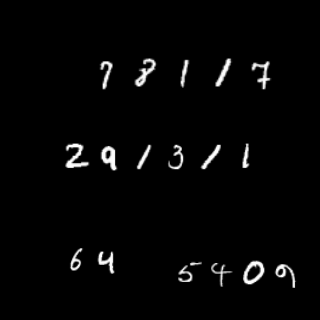 781/7
29/3/1
64 5409